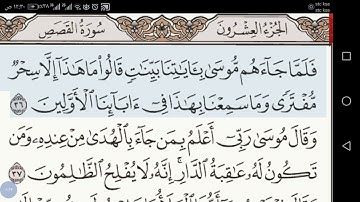 ١٢:٣٠ ص
stc ksa
stc ksa
سُورَةُ القَصَصِ
الجُزْءُ العِشْرُونَ
فَلَمَّا جَآءَهُم مُّوسَىٰ بِـَٔايَٰتِنَا بَيِّنَٰتٍ قَالُوا۟ مَا هَٰذَآ إِلَّا سِحْرٌ
مُّفْتَرًى وَمَا سَمِعْنَا بِهَٰذَا فِىٓ ءَابَآئِنَا ٱلْأَوَّلِينَ ٣٦
وَقَالَ مُوسَىٰ رَبِّىٓ أَعْلَمُ بِمَن جَآءَ بِٱلْهُدَىٰ مِنْ عِندِهِۦ وَمَن
تَكُونُ لَهُۥ عَٰقِبَةُ ٱلدَّارِ إِنَّهُۥ لَا يُفْلِحُ ٱلظَّٰلِمُونَ ٣٧